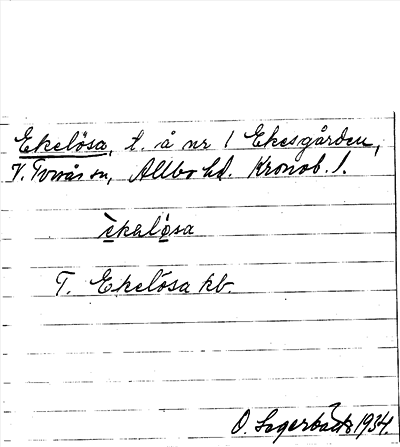 Ekelösa, t. å nr 1 Ekesgården,
V. Torsås sn, Allbo hd. Kronob. l.
èkelò̩sa
T. Ekelösa kb.
O. 1934.